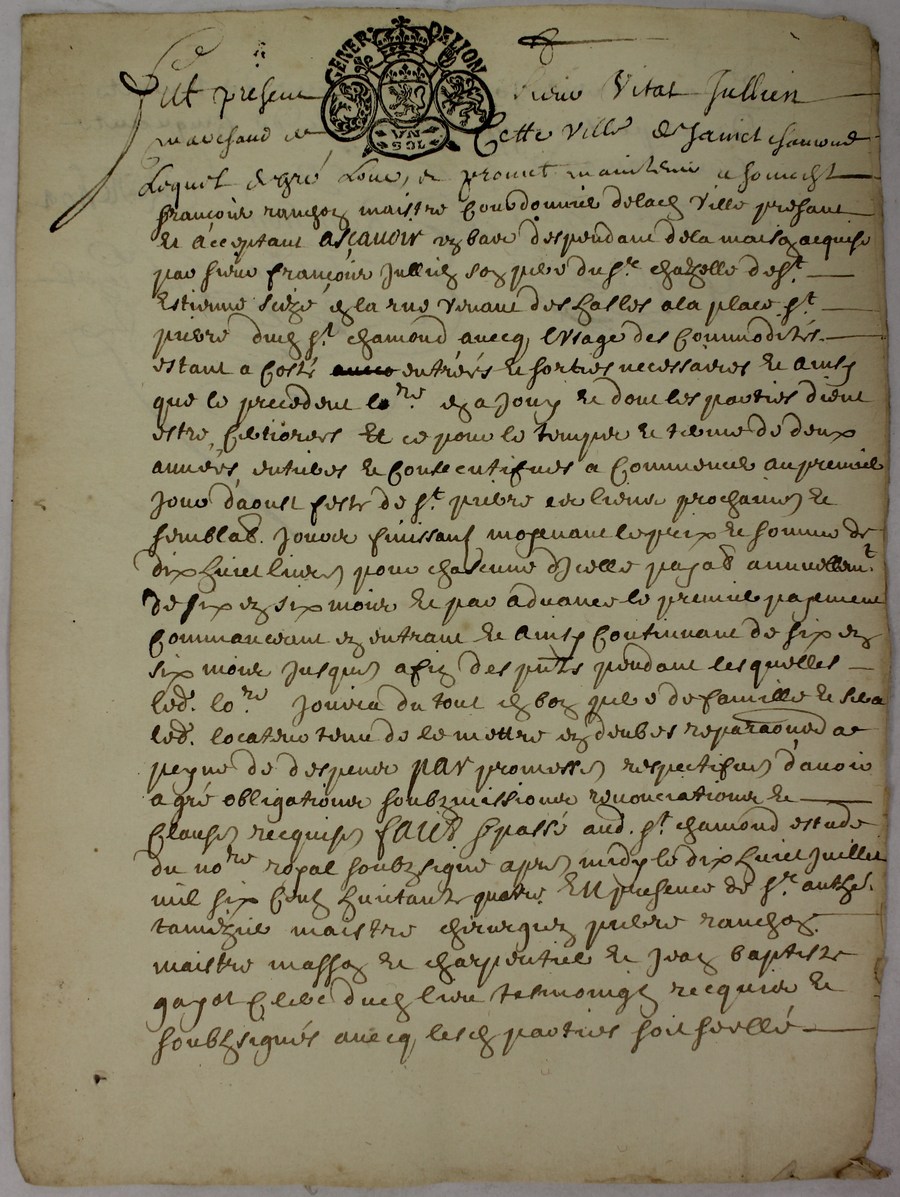 GENER DE LION
Fut present Sieur Vital Jullien
marchand de Cette Ville de Sainct chamond
Lequel de gré Loue, et promet maintenir a honnest
françois ranchon maistre Courdonnier delad Ville présant
Et acceptant ascavoir un bas despendant dela maison acquise
par sieur françois Jullien son pere du sr. chazelle de st.
Estienne sizé en la rue Venant des halles a la place st.
pierre dud st. chamond avecq lusage des Commodités
estant a Costé entrées et sorties necessaires et ainsy
que le precedent lore. en a Jouy et dont les parties dient
estre Certiorées Et ce pour le temps et terme de deux
années entieres et Consecutifves a Commencer au premier
Jour daoust feste de st. pierre es liens prochaines et
semblab. Jour finissant moyenant le prix et somme de
dix huict livres pour chascune d'Icelle payab annuellemt.
de six en six mois et par advance le premier payement
Commanceant en entrant et ainsy Continuant de six en
six mois Jusques a fin des pnts pendant lesquelles
led. lore. Jouira du tout en bon pere de famille et sera
led. locateur tenu de le mettre en deubes reparaons a
peyne de despens par promesses respectifves d'avoir
a gré obligations soubzmissions renonciations et
Clauses recquises fait & passé aud. st. chamond estude
du nore royal soubzsigné apres midy le dix huict Juillet
mil six Cents huictante quatre En presence de sr. anthe.
maistre chirurgien pierre ranchon
maistre masson et charpentier et Jean baptiste
gayot Clerc dud lieu tesmoings recquis et
soubzsignés avecq lesd parties soit scellé